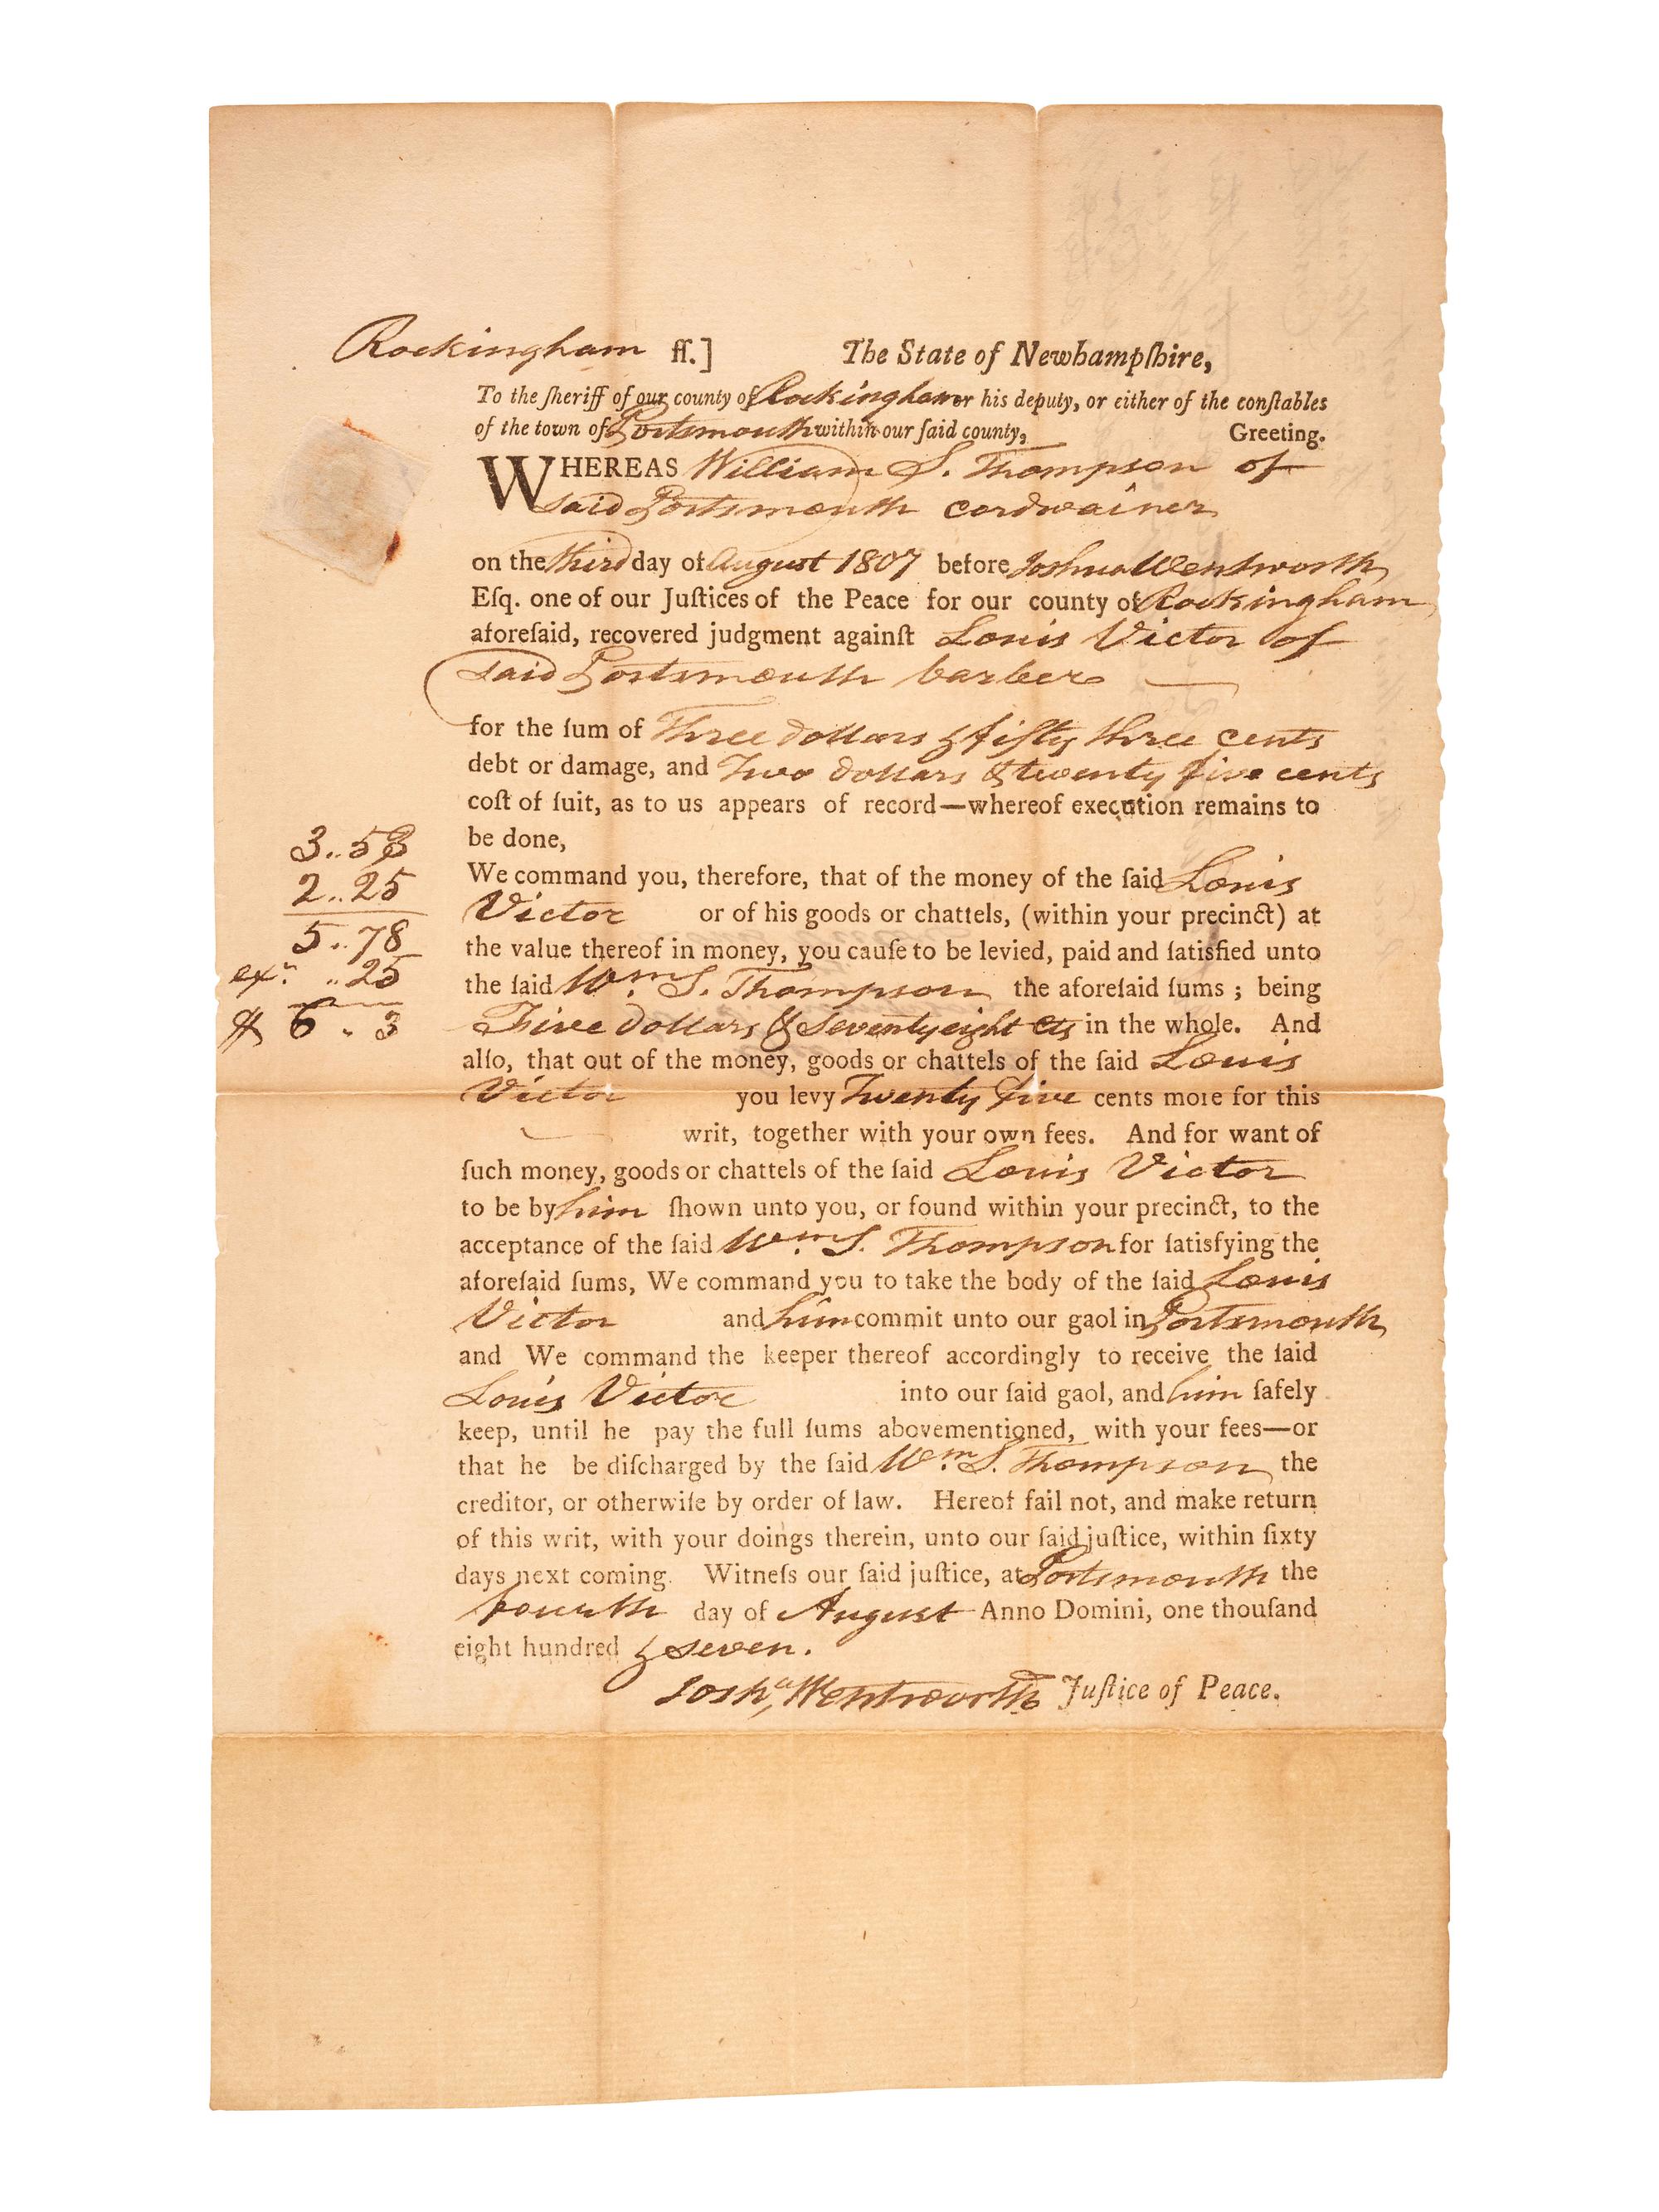 Rockingham ſſ.] The State of Newhampſhire,
To the ſheriff of our county of Rockingham or his deputy, or either of the conſtables
of the town of Portsmouth within our ſaid county, Greeting.
WHEREAS William S. Thompson of
said Portsmouth cordwainer
on the third day of August 1807 before Joshua Wentworth
Eſq. one of our Juſtices of the Peace for our county of Rockingham
aforeſaid, recovered judgment againſt Louis Victor of
said Portsmouth barber
for the ſum of Three dollars & fifty three cents
debt or damage, and Two dollars & twenty five cents
coſt of ſuit, as to us appears of record—whereof execution remains to
be done,
3..53
2..25
5..78
exn. ..25
$ 6.. 3
We command you, therefore, that of the money of the ſaid Louis
Victor or of his goods or chattels, (within your precinct) at
the value thereof in money, you cauſe to be levied, paid and ſatisfied unto
the ſaid Wm. S. Thompson the aforeſaid ſums ; being
Five dollars & Seventy eight cts in the whole. And
alſo, that out of the money, goods or chattels of the ſaid Louis
Victor you levy Twenty five cents more for this
writ, together with your own fees. And for want of
ſuch money, goods or chattels of the ſaid Louis Victor
to be by him ſhown unto you, or found within your precinct, to the
acceptance of the ſaid Wm. S. Thompson for ſatisfying the
aforeſaid ſums, We command you to take the body of the ſaid Louis
Victor and him commit unto our gaol in Portsmouth
and We command the keeper thereof accordingly to receive the ſaid
Louis Victor into our ſaid gaol, and him ſafely
keep, until he pay the full ſums abovementioned, with your fees—or
that he be diſcharged by the ſaid Wm. S. Thompson the
creditor, or otherwiſe by order of law. Hereof fail not, and make return
of this writ, with your doings therein, unto our ſaid juſtice, within ſixty
days next coming. Witneſs our ſaid juſtice, at Portsmouth the
fourth day of August Anno Domini, one thouſand
eight hundred & seven.
Josha, Wentworth Juſtice of Peace.